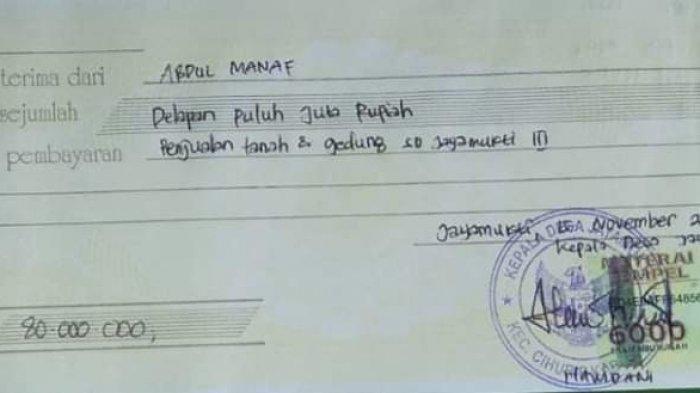 terima dari ABDUL MANAF
sejumlah Delapan puluh Juta Rupiah
pembayaran Penjualan tanah & gedung SD Jayamukti III
Jayamukti, November 2
Kepala Desa
KEPALA DESA
MATERAI
TEMPEL
6000
80.000 000,
KEC. CIHURIP